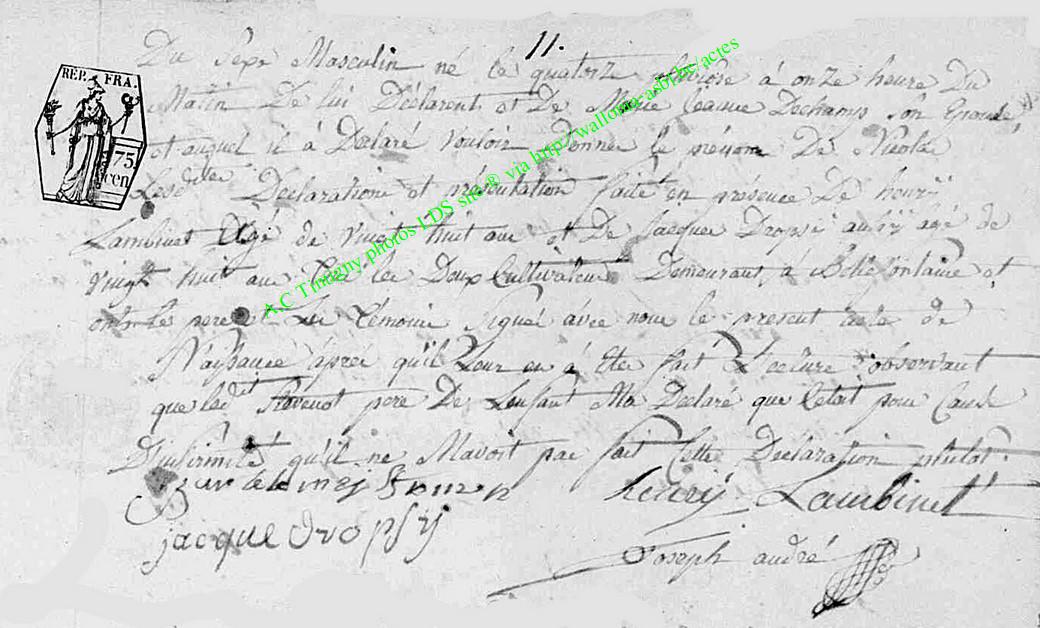 11.
Du Sexe Masculin né le quatorze à onze heure Du
Matin De lui Déclarent et De Marie Jeanne Dechamps son Epouse,
et auquel il à Declaré vouloir Donner le prénom De Nicolas
Lesdites Declaration et présentation faite en présence De henri
Lambinet Agé de vingt huit ans et De Jacques Dropsi aussy agé de
vingt huit ans les Deux Cultivateurs Demeurant a Bellefontaine et
ont le pere et Les témoins Signés avec nous le present acte de
Naissance après qu'il Leur en à Eté fait Lecture observant
que led^t pere De Lenfant Ma Declaré que Cetoit pour Cause
Dinfirmité qu'il ne Mavoit pas fait Cette Declaration plutot.
henrij Lambinet
jacque dropsij
Joseph andré
REP. FRA.
75
cen
A.C Tintigny photos LDS site® via http://wallonia-asbl.be/actes